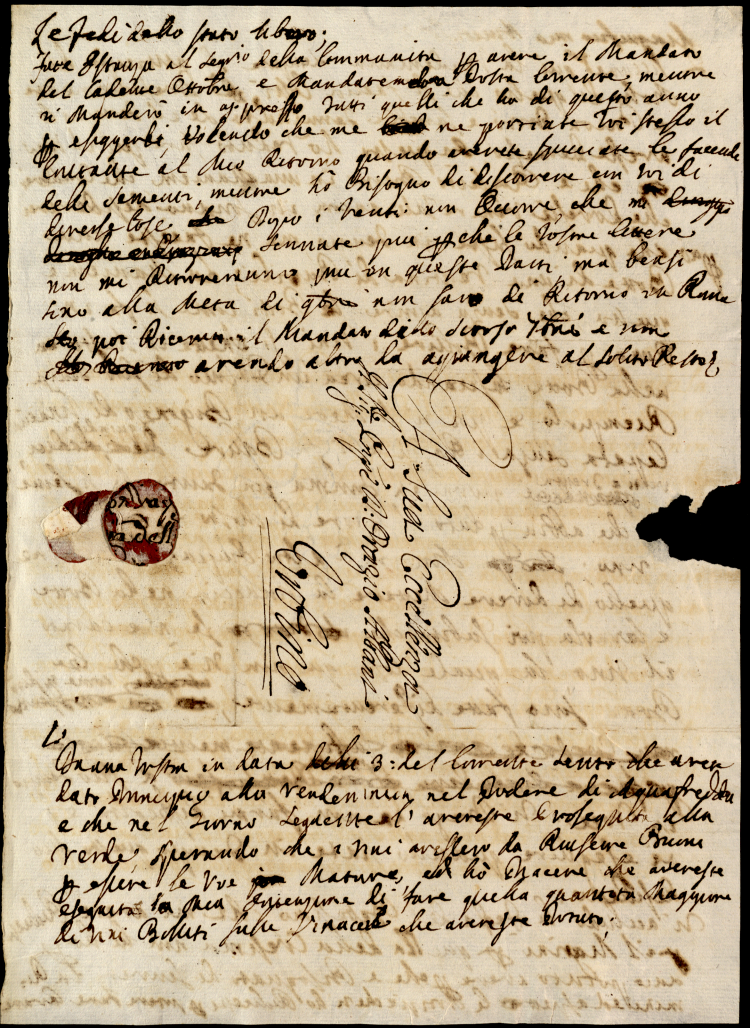 Le fedi dello stato libero;
fare Istanza al Segrio della Communità p avere il Mandato
del cadente Ottobre, e Mandatemelo Posta Corrente, mentre
vi Manderò in appresso tutti quelli che ho di questo anno
p esiggerli, volendo che me ne portiate voi stesso il
Contante al Mio Ritorno quando averete spicciate le facende
delle Sementi, mentre hò Bisogno di discorrere con voi di
diverse Cose. Dopo i venti non Occorre che mi
Scriviate più p che le Vostre lettere
non mi Ritroveranno più in queste Parti ma bensì
sino alla Metà di 9bre non sarò di Ritorno in Roma
poi Ricevuto il Mandato di do scorso 7bre e non
avendo altro da aggiungere al solito Resto
A Sua Eccellenza
Il Sig.r Orazio Albani
Urbino
Da una Vostra in data delli 3: del Corrente sento che avete
dato Principio alla vendemmia nel Podere di Acquafredda
e che nel Giorno seguente l' avereste Proseguita alla
Verde, sperando che i vini avessero da Riuscire Buoni
p essere le Uve Mature, ed hò Piacere che avereste
eseguita la Mia Intenzione di fare quella quantità Maggiore
di vini Bolliti sulle Vinaccie che avereste Potuto;